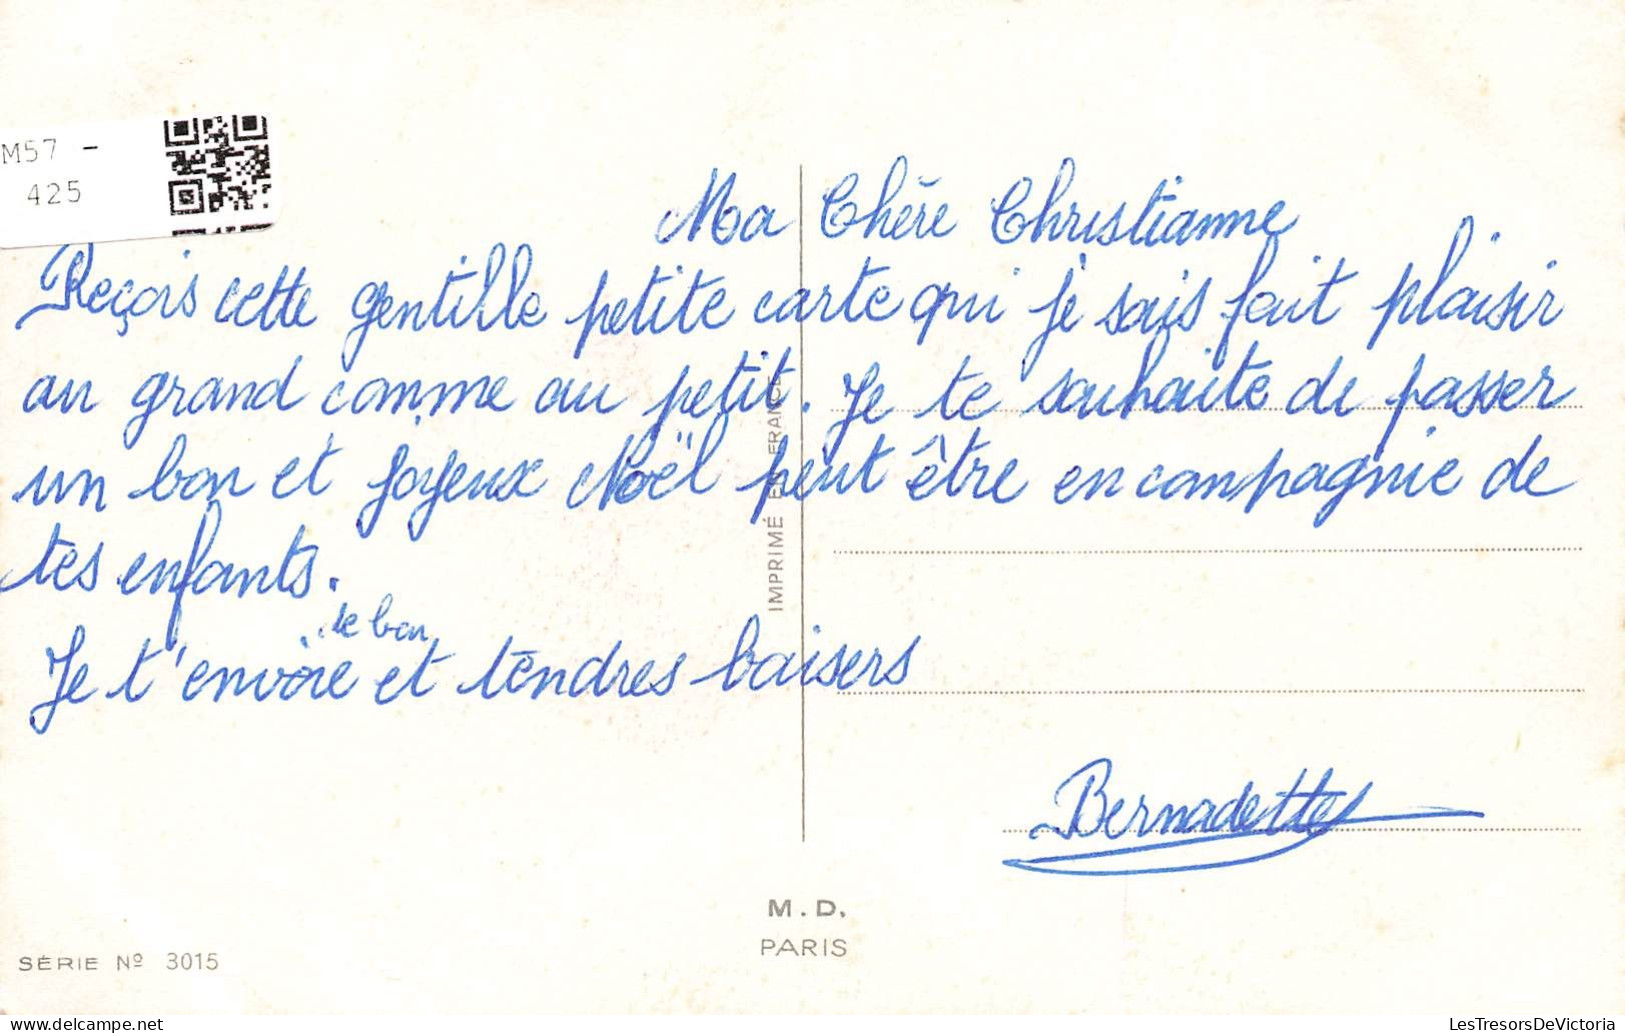 M57 -
425
Ma Chère Christianne
Reçois cette gentille petite carte qui je sais fait plaisir
au grand comme au petit. Je te souhaite de passer
un bon et joyeux Noël peut être en compagnie de
tes enfants.
de bon
Je t'envoie et tendres baisers
Bernadette
IMPRIMÉ EN FRANCE
M.D.
PARIS
SÉRIE Nº 3015
LesTresorsDeVictoria